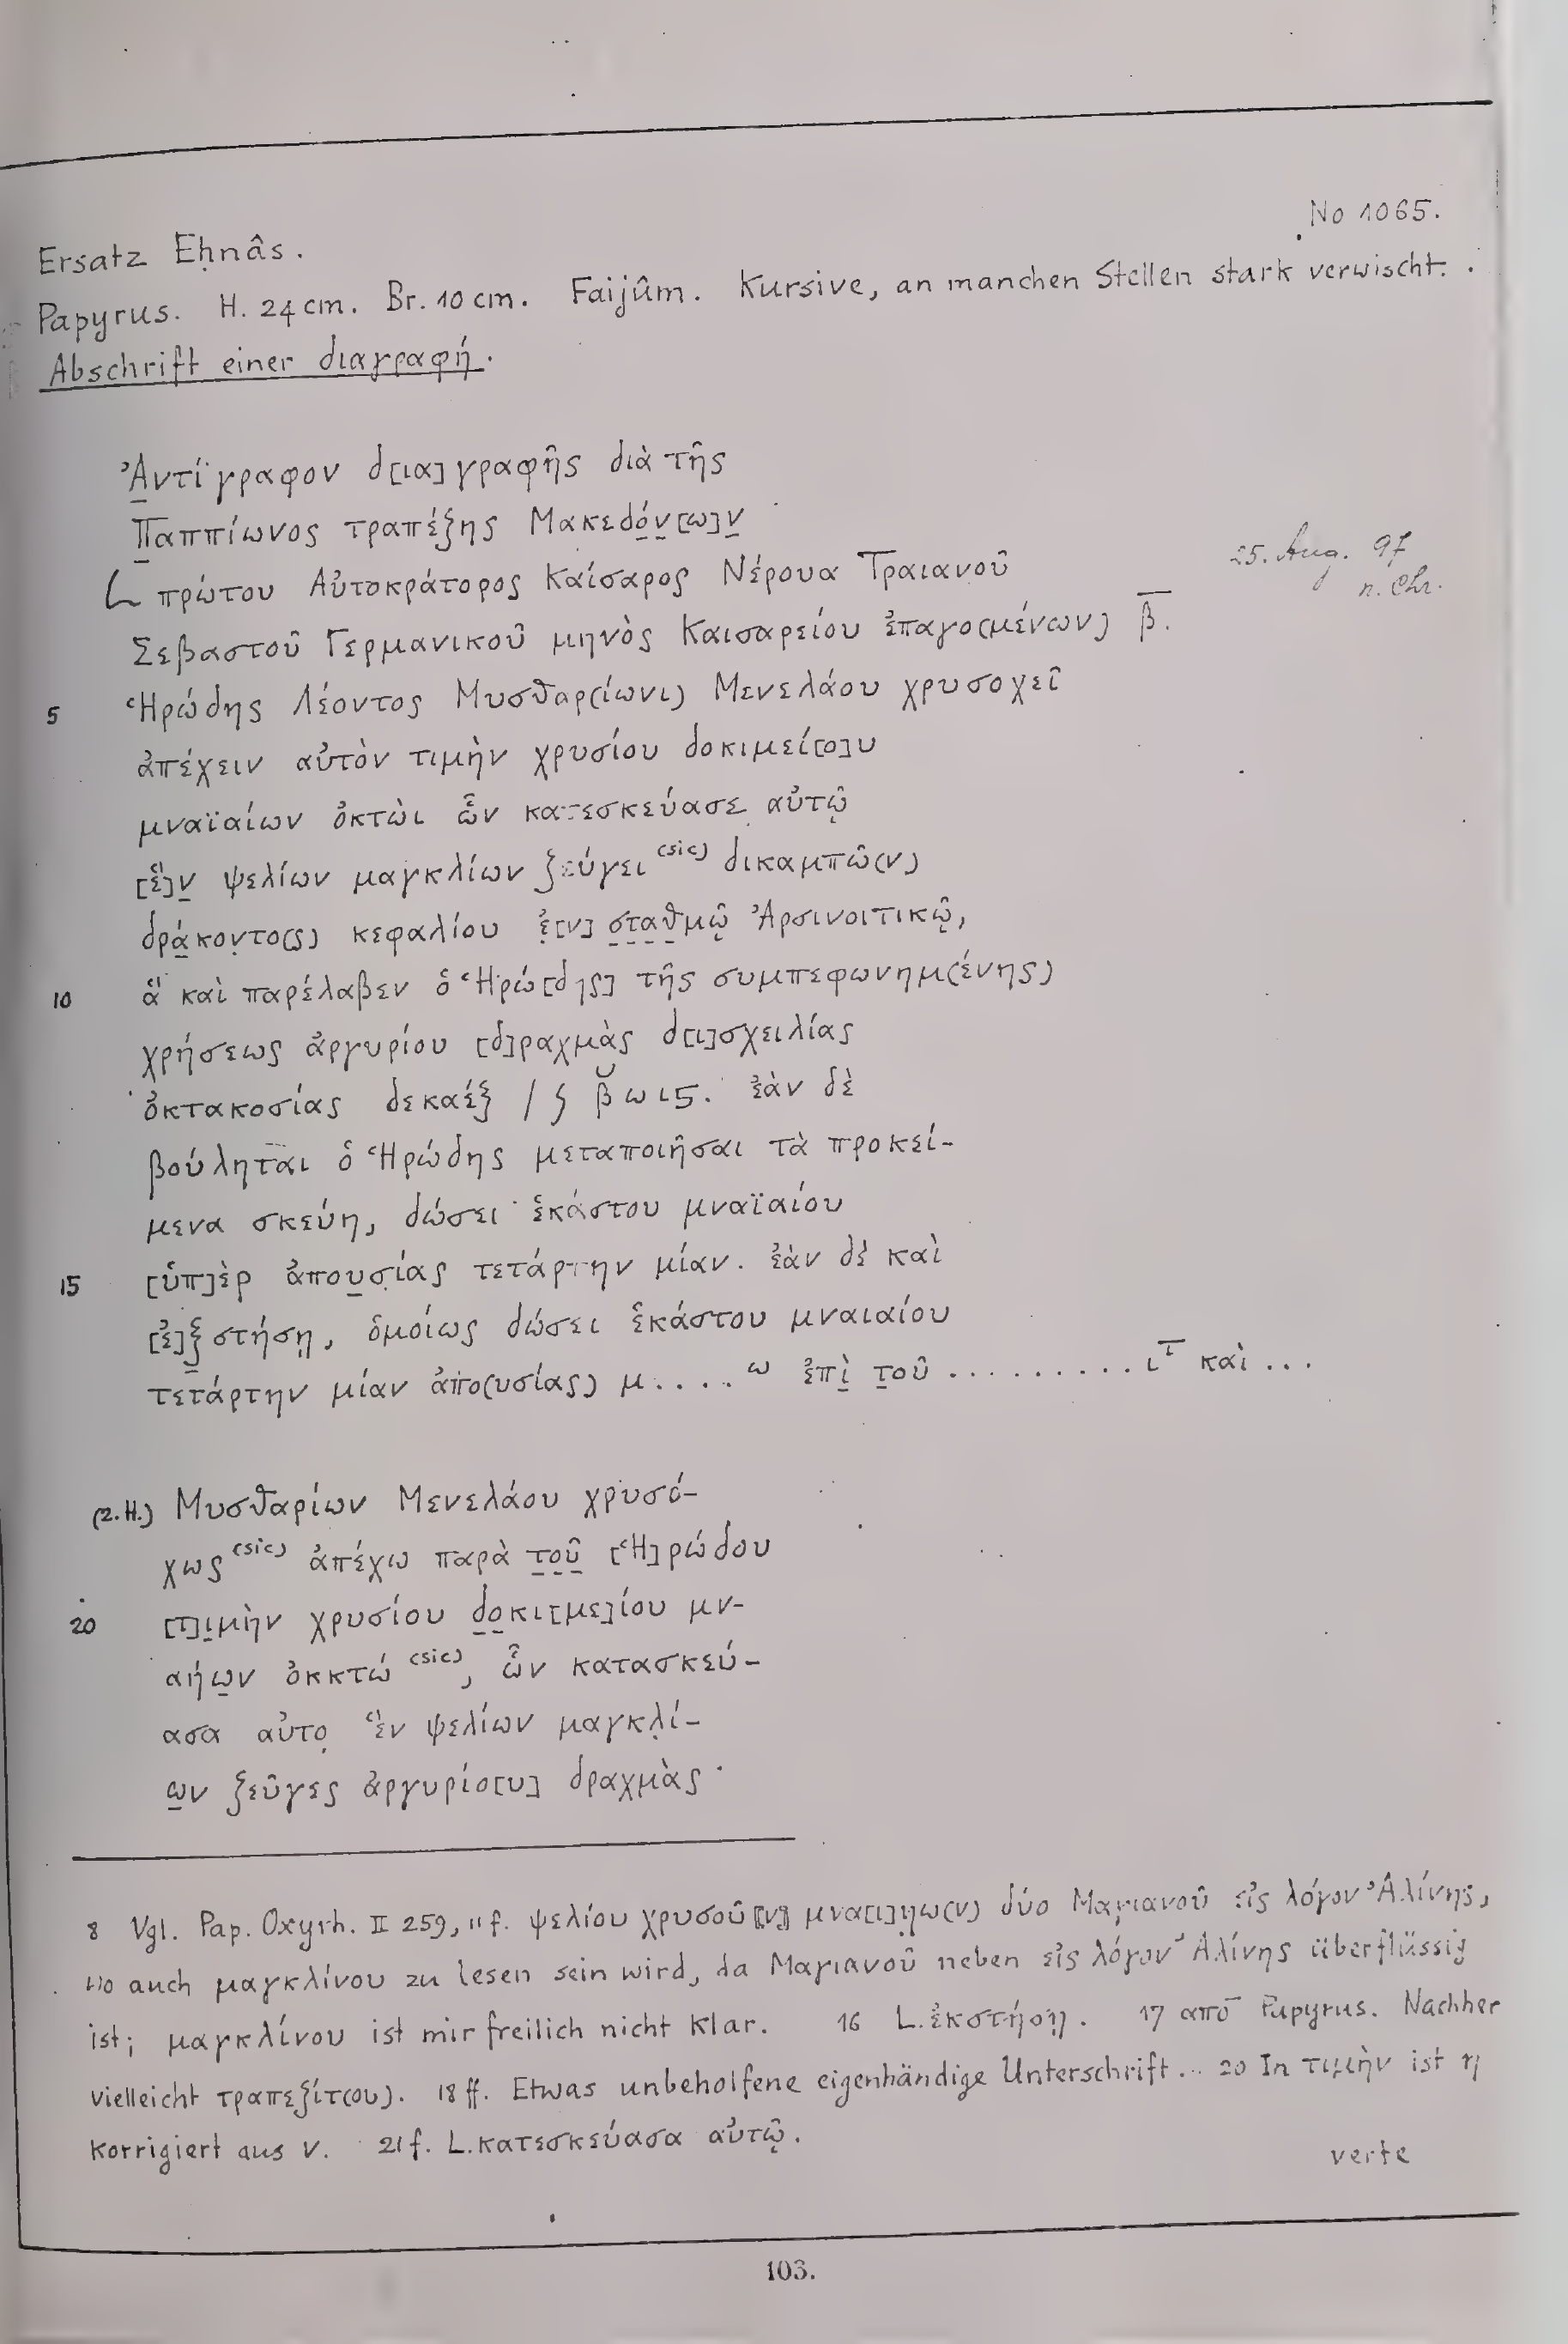 No 1065.
Ersatz Eḥnâs.
Papyrus. H. 24 cm. Br. 10 cm. Faijûm. Kursive, an manchen Stellen stark verwischt.
Abschrift einer διαγραφή.
Ἀντίγραφον δ[ια]γραφῆς διὰ τῆς
Παππίωνος τραπέζης Μακεδό̣ν̣[ω]ν̣
L πρώτου Αὐτοκράτορος Καίσαρος Νέρουα Τραιανοῦ
25. Aug. 97
n. Chr.
Σεβαστοῦ Γερμανικοῦ μηνὸς Καισαρείου ἐπαγο(μένων) β̅.
5 Ἡρώδης Λέοντος Μυσθαρ(ίωνι) Μενελάου χρυσοχεῖ
ἀπέχειν αὐτὸν τιμὴν χρυσίου δοκιμεί[ο]υ
μναϊαίων ὀκτὼι ὧν κατεσκεύασε αὐτῷ
[ἓ]ν̣ ψελίων μαγκλίων ζεύγει (sic) δικαμπῶ(ν)
δρά̣κοντο(ς) κεφαλίου ἐ̣[ν] σ̣τ̣α̣θ̣μῷ Ἀρσινοιτικῷ,
10 ἃ καὶ παρέλαβεν ὁ Ἡρώ[δης] τῆς συμπεφωνημ(ένης)
χρήσεως ἀργυρίου [δ]ραχμὰς δ[ι]σχειλίας
ὀκτακοσίας δεκαέξ / ϛ β̆ωιϛ. ἐὰν δὲ
βούληται ὁ Ἡρώδης μεταποιῆσαι τὰ προκεί-
μενα σκεύη, δώσει ἑκάστου μναϊαίου
15 [ὑπ]ὲρ ἀπου̣σίας τετάρτην μίαν. ἐὰν δὲ καὶ
[ἐ]ξ̣στήσῃ, ὁμοίως δώσει ἑκάστου μναιαίου
τετάρτην μίαν ἀπο(υσίας) μ....ω ἐπὶ̣ τ̣οῦ ..........ιτ̅ καὶ...
(2. H.) Μυσθαρίων Μενελάου χρυσό-
χως (sic) ἀπέχω παρὰ τ̣ο̣ῦ̣ [Ἡ]ρώδου
20 [τ]ι̣μὴν χρυσίου δ̣ο̣κι[με]ίου μν-
αήω̣ν ὀκκτώ (sic), ὧν κατασκεύ-
ασα αὐτο̣ ἓν ψελίων μαγκλί-
ω̣ν ζεῦγες ἀργυρίο[υ] δραχμὰς
8 Vgl. Pap. Oxyrh. II 259, 11 f. ψελίου χρυσοῦ⟦ν⟧ μνα[ι]ηω(ν) δύο Μαγιανοῦ εἰς λόγον Ἀλίνης,
wo auch μαγκλίνου zu lesen sein wird, da Μαγιανοῦ neben εἰς λόγον Ἀλίνης überflüssig
ist; μαγκλίνου ist mir freilich nicht klar. 16 L. ἐκστήσῃ. 17 απο̅ Papyrus. Nachher
vielleicht τραπεζίτ(ου). 18 ff. Etwas unbeholfene eigenhändige Unterschrift. 20 In τιμὴν ist η
korrigiert aus ν. 21 f. L. κατεσκεύασα αὐτῷ.
verte
103.